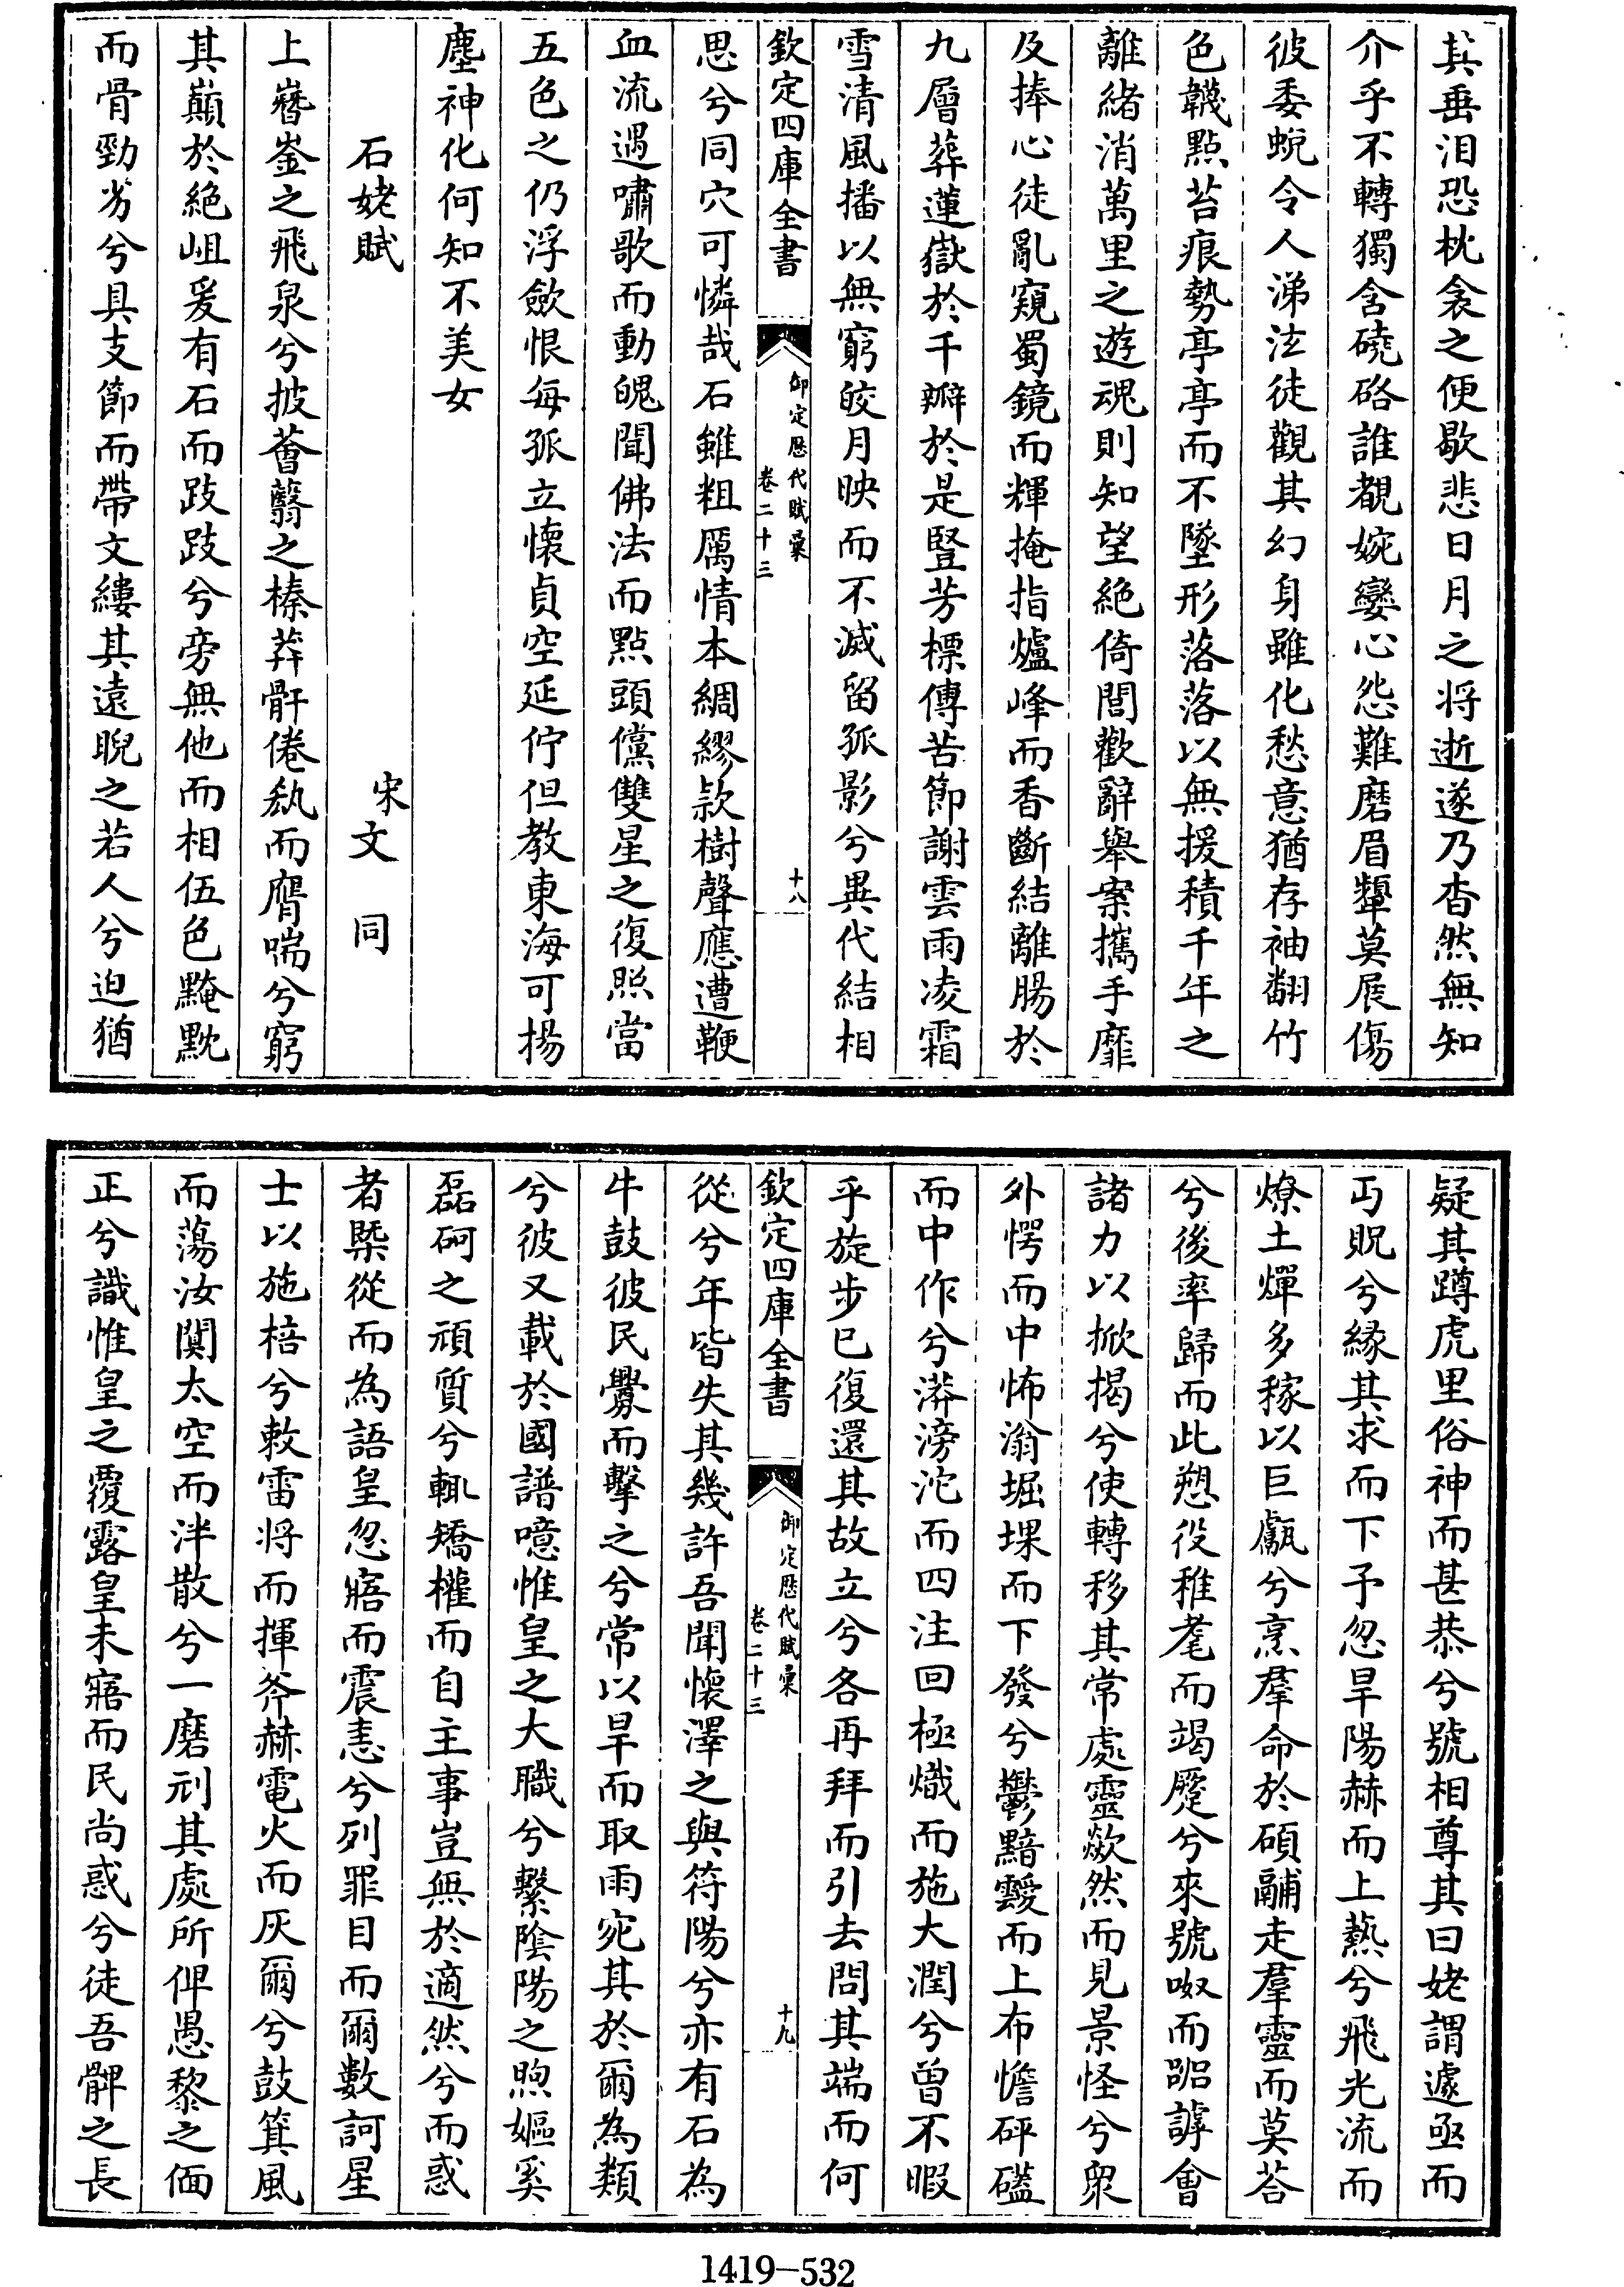 其垂泪恐枕衾之便歇悲日月之将逝遂乃杳然無知
介乎不轉獨含磽硌誰覩婉孌心怨難磨眉顰莫展傷
彼委蛻令人涕泫徒觀其幻身雖化愁意猶存袖翻竹
色韈點苔痕勢亭亭而不墜形落落以無援積千年之
離緒消萬里之遊魂則知望絶倚閭歡辭舉案攜手靡
及捧心徒亂窺蜀鏡而輝掩指爐峰而香斷結離腸於
九層葬蓮嶽於千瓣於是豎芳標傳苦節謝雲雨凌霜
雪清風播以無窮皎月映而不滅留孤影兮異代結相
欽定四庫全書
御定歴代賦彙
卷二十三
十八
思兮同穴可憐哉石雖粗厲情本綢繆款樹聲應遭鞭
血流遇嘯歌而動魄聞佛法而點頭儻雙星之復照當
五色之仍浮歛恨每孤立懷貞空延佇但教東海可揚
塵神化何知不美女
石姥賦
宋文同
上嶜崟之飛泉兮披薈蘙之榛莽骭倦㷂而膺喘兮窮
其巔於絶岨爰有石而跂跂兮旁無他而相伍色黤黕
而骨勁劣兮具支節而帶文縷其遠睨之若人兮迫猶
疑其蹲虎里俗神而甚恭兮號相尊其曰姥謂遽亟而
丐貺兮緣其求而下予忽旱陽赫而上爇兮飛光流而
燎土燀多稼以巨甗兮烹羣命於碩鬴走羣靈而莫荅
兮後率歸而此愬役稚耄而竭蹷兮來號呶而詻謼會
諸力以掀揭兮使轉移其常處靈歘然而見景怪兮衆
外愕而中怖滃堀堁而下發兮鬱黯靉而上布憺砰礚
而中作兮漭滂沱而四注回極熾而施大潤兮曾不暇
乎旋步已復還其故立兮各再拜而引去問其端而何
欽定四庫全書
御定歴代賦彙
卷二十三
十九
從兮年皆失其幾許吾聞懷澤之與符陽兮亦有石為
牛鼓彼民釁而擊之兮常以旱而取雨宛其於爾為類
兮彼又載於國譜噫惟皇之大職兮繫陰陽之煦嫗奚
磊砢之頑質兮輒矯權而自主事豈無於適然兮而惑
者槩從而為語皇忽寤而震恚兮列罪目而爾數訶星
士以施棓兮敕雷将而揮斧赫電火而灰爾兮鼓箕風
而蕩汝闃太空而泮散兮一磨刓其處所俾愚黎之偭
正兮識惟皇之覆露皇未寤而民尚惑兮徒吾髀之長
1419-532